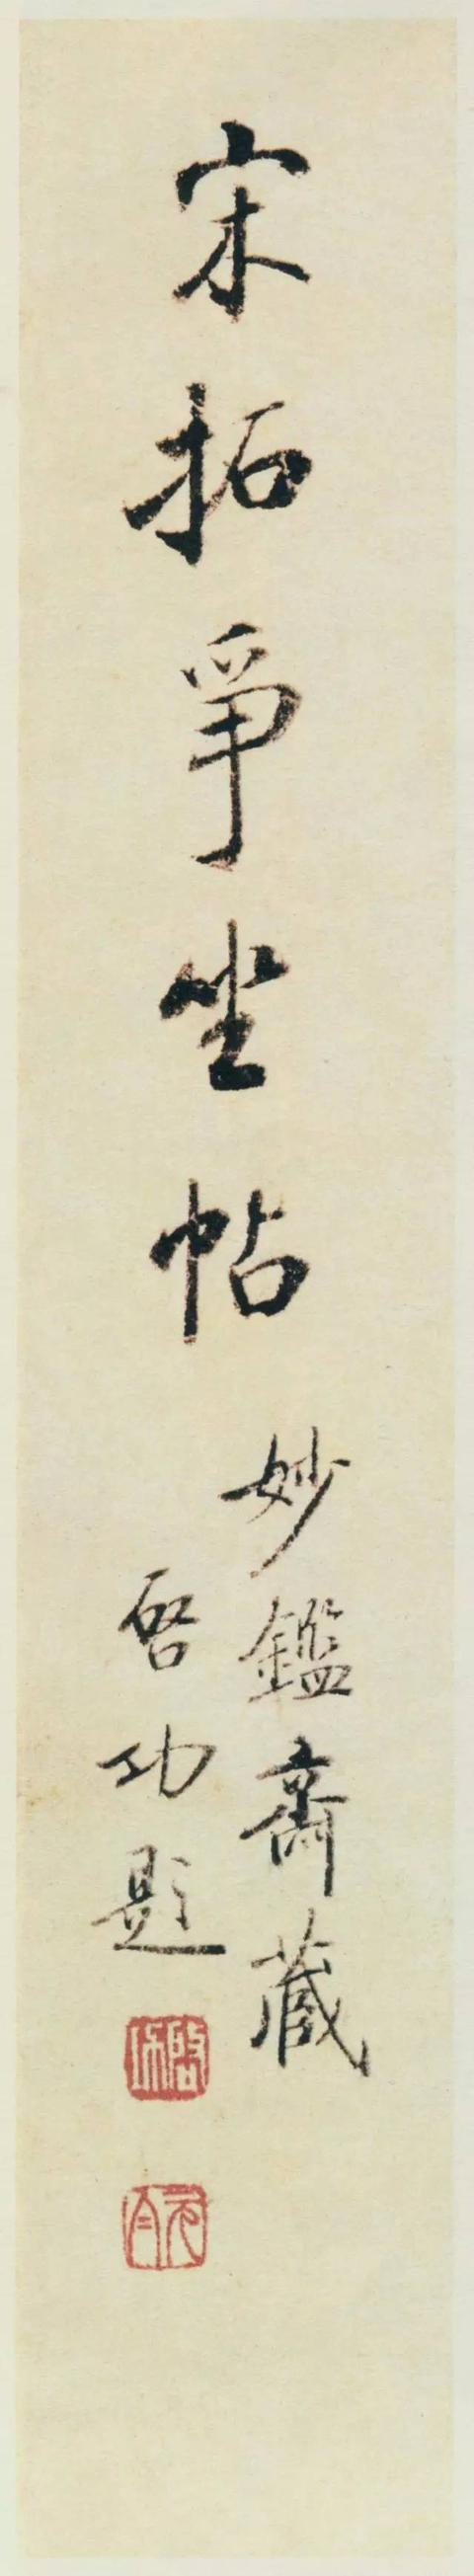 宋拓爭坐帖
妙鑑齋藏
啓功題